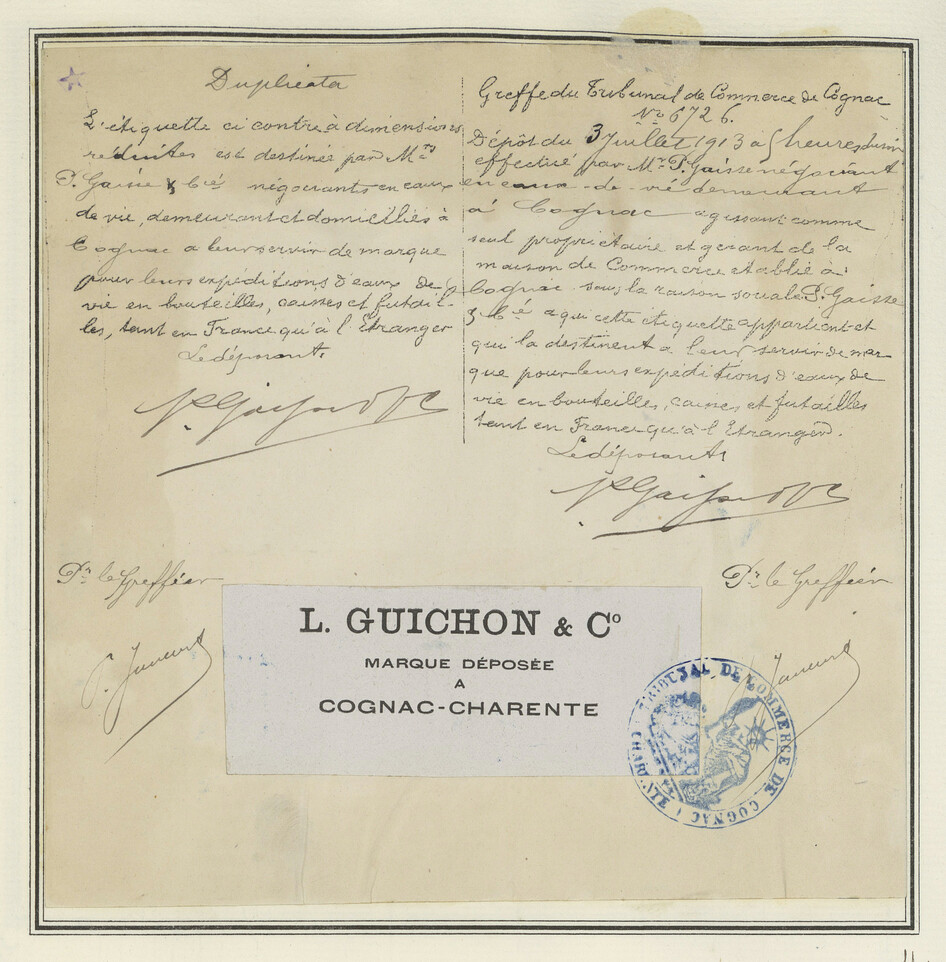 Duplicata
L'étiquette ci contre à dimensions
réduites est destinée par Mrs
P. Gaisse & Cié négociants en eaux
de vie, demeurant et domiciliés à
Cognac a leur servir de marque
pour leurs expéditions d'eaux de
vie en bouteilles, caisses et futail-
les, tant en France qu'à l'Etranger
Le déposant,
P. Gaisse & Cie
Greffe du Tribunal de Commerce de Cognac
No 6726.
Dépôt du 3 Juillet 1913 à 5 heures du soir
effectué par Mr. P. Gaisse négociant
en eaux-de-vie demeurant
à Cognac agissant comme
seul propriétaire et gérant de la
maison de Commerce établie à
Cognac sous la raison sociale P. Gaisse
& Cié a qui cette étiquette appartient et
qui la destinent à leur servir de mar
que pour leurs expéditions d'eaux de
vie en bouteilles, caisses et futailles
tant en France qu'à l'Etranger.
Le déposant,
P. Gaisse & Cie
Pr le Greffier
Pr le Greffier
L. GUICHON & Co
MARQUE DÉPOSÉE
A
COGNAC-CHARENTE
TRIBUNAL DE COMMERCE DE COGNAC (CHARENTE)